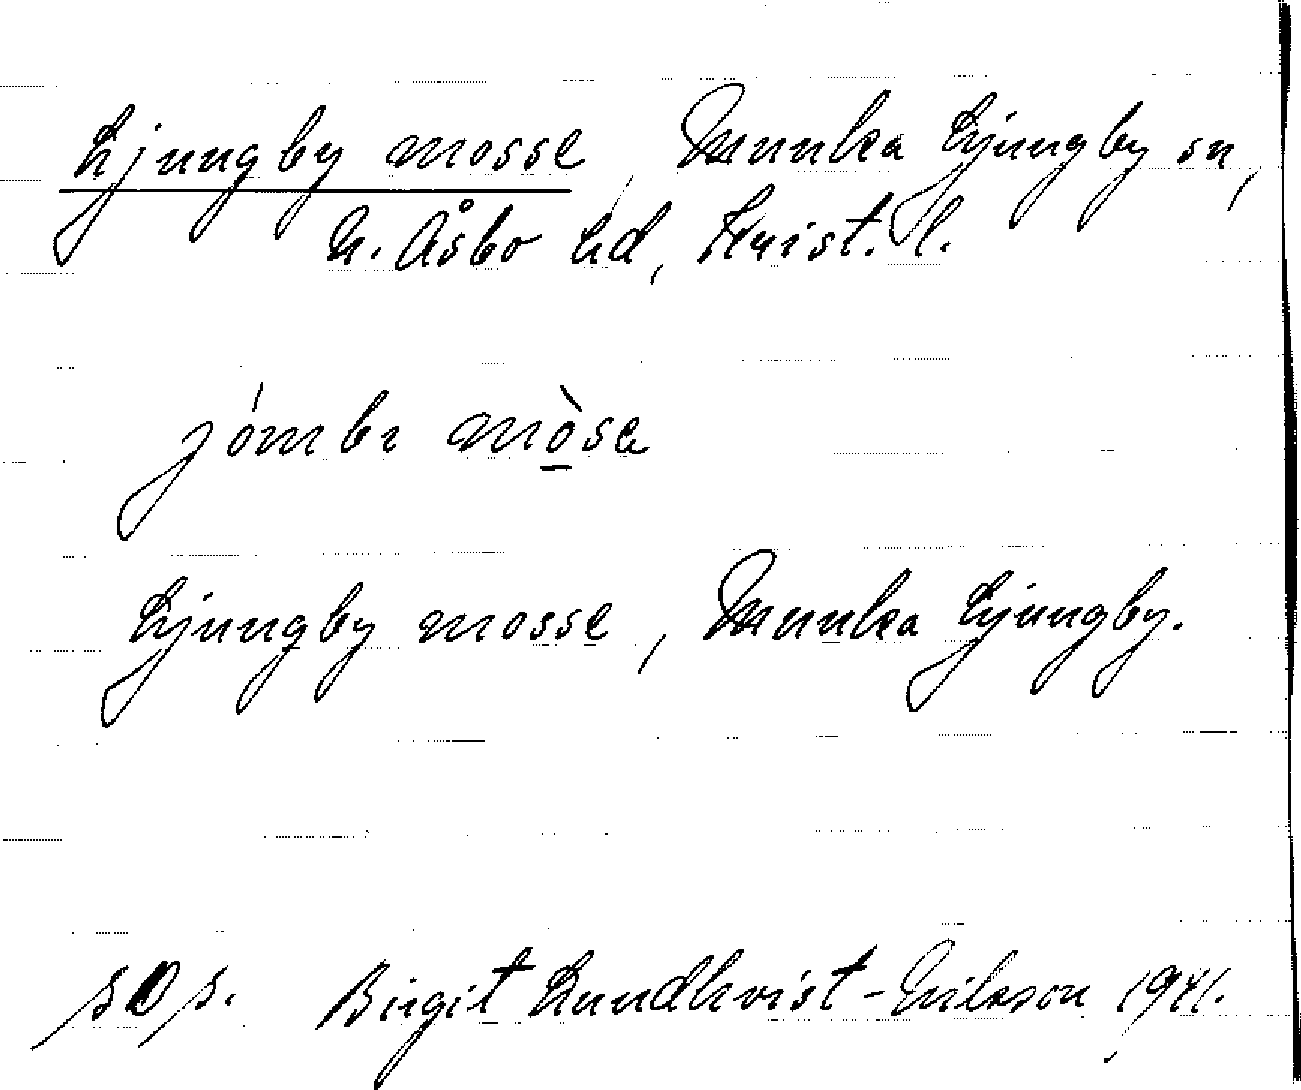 Ljungby mosse, Munka Ljungby sn,
N. Åsbo hd, Krist. l.
jómbı mòsa
Ljungby mosse, Munka Ljungby.
Birgit Lundkvist-Nilsson 1941.